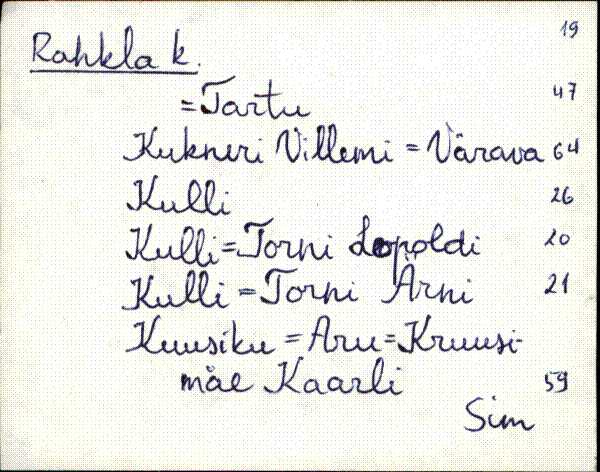 19
Rahkla k.
=Tartu 47
Kukneri Villemi = Värava 64
Kulli 26
Kulli=Torni Leopoldi 20
Kulli = Torni Ärni 21
Kuusiku = Aru=Kruusi-
mäe Kaarli 59
Sim